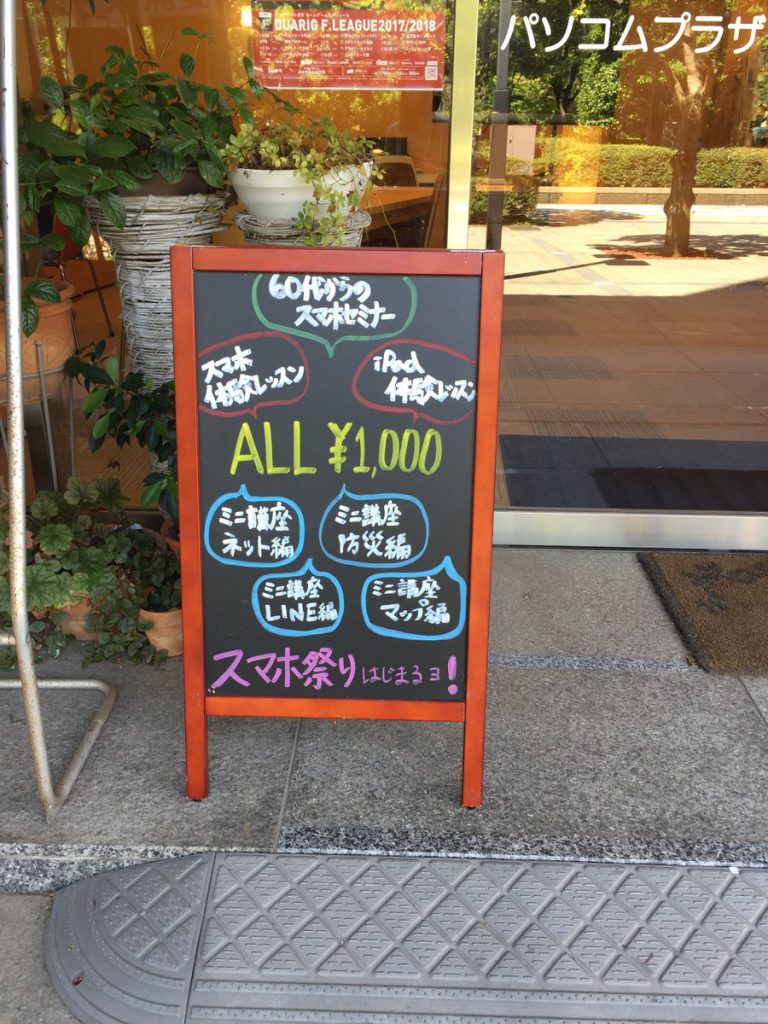 DUARIG F.LEAGUE2017/2018
パソコムプラザ
60代からの
スマホセミナー
スマホ
体験レッスン
iPad
体験レッスン
ALL ¥1,000
ミニ講座
ネット編
ミニ講座
防災編
ミニ講座
LINE編
ミニ講座
マップ編
スマホ祭りはじまるヨ!